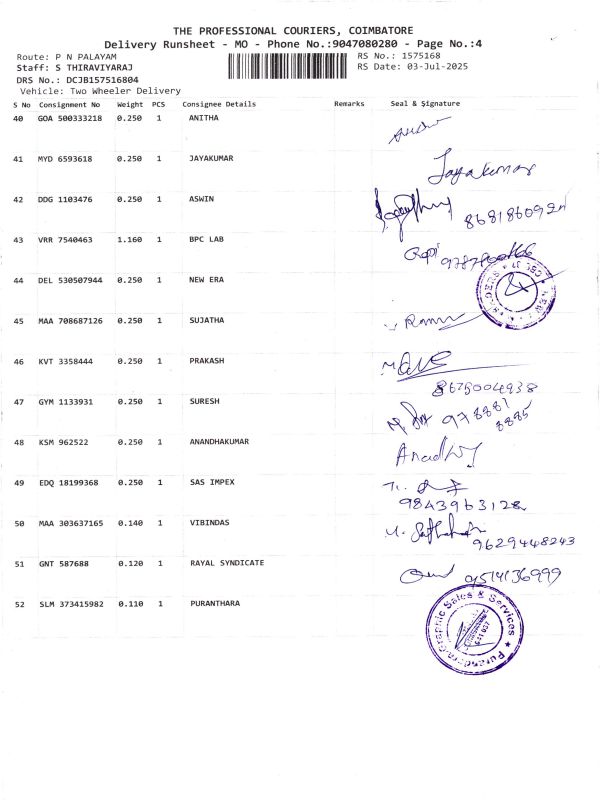 THE PROFESSIONAL COURIERS, COIMBATORE
Delivery Runsheet - MO - Phone No.:9047080280 - Page No.:4
Route: P N PALAYAM
Staff: S THIRAVIYARAJ
DRS No.: DCJB157516804
Vehicle: Two Wheeler Delivery
RS No.: 1575168
RS Date: 03-Jul-2025
S No Consignment No Weight PCS Consignee Details Remarks Seal & Signature
40 GOA 500333218 0.250 1 ANITHA
41 MYD 6593618 0.250 1 JAYAKUMAR Jayakumar
42 DDG 1103476 0.250 1 ASWIN
43 VRR 7540463 1.160 1 BPC LAB Gopi
44 DEL 530507944 0.250 1 NEW ERA
45 MAA 708687126 0.250 1 SUJATHA
46 KVT 3358444 0.250 1 PRAKASH
8675004938
47 GYM 1133931 0.250 1 SURESH 978881
8885
48 KSM 962522 0.250 1 ANANDHAKUMAR
49 EDQ 18199368 0.250 1 SAS IMPEX
9843963128
50 MAA 303637165 0.140 1 VIBINDAS
9629448243
51 GNT 587688 0.120 1 RAYAL SYNDICATE 9514136999
52 SLM 373415982 0.110 1 PURANTHARA
Graphic Sales & Services